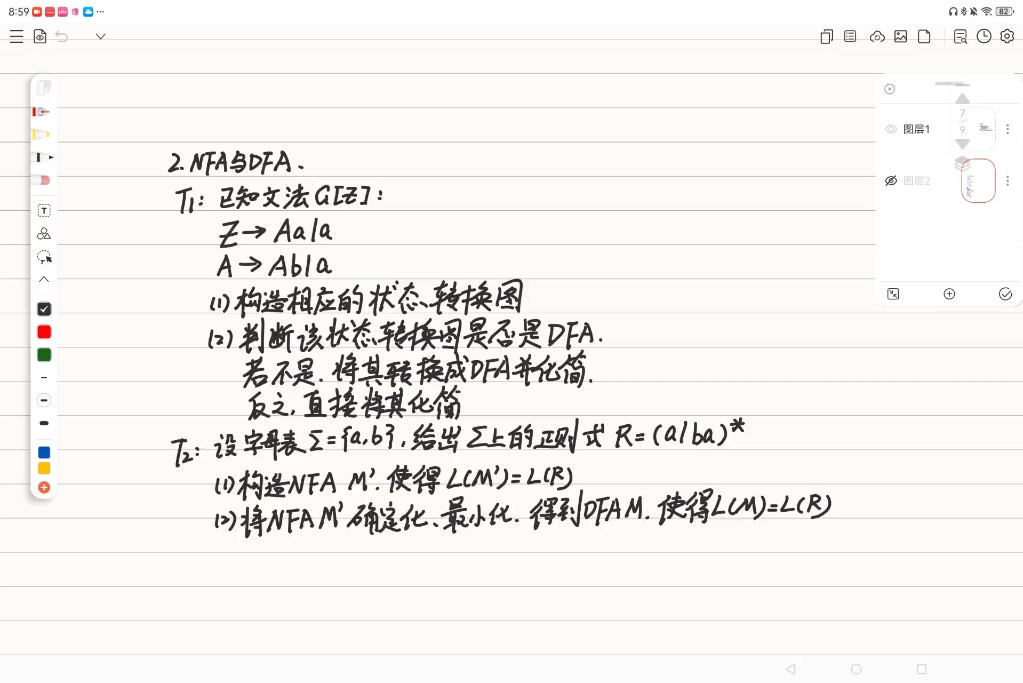 8:59
82
7
9
图层1
图层2
2. NFA与DFA.
T1: 已知文法G[Z]:
Z→Aa|a
A→Ab|a
(1)构造相应的状态转换图
(2)判断该状态转换图是否是DFA.
若不是.将其转换成DFA并化简.
反之.直接将其化简
T2: 设字母表Σ={a,b},给出Σ上的正则式R=(a|ba)*
(1)构造NFA M'.使得L(M')=L(R)
(2)将NFA M'确定化、最小化.得到DFA M.使得L(M)=L(R)